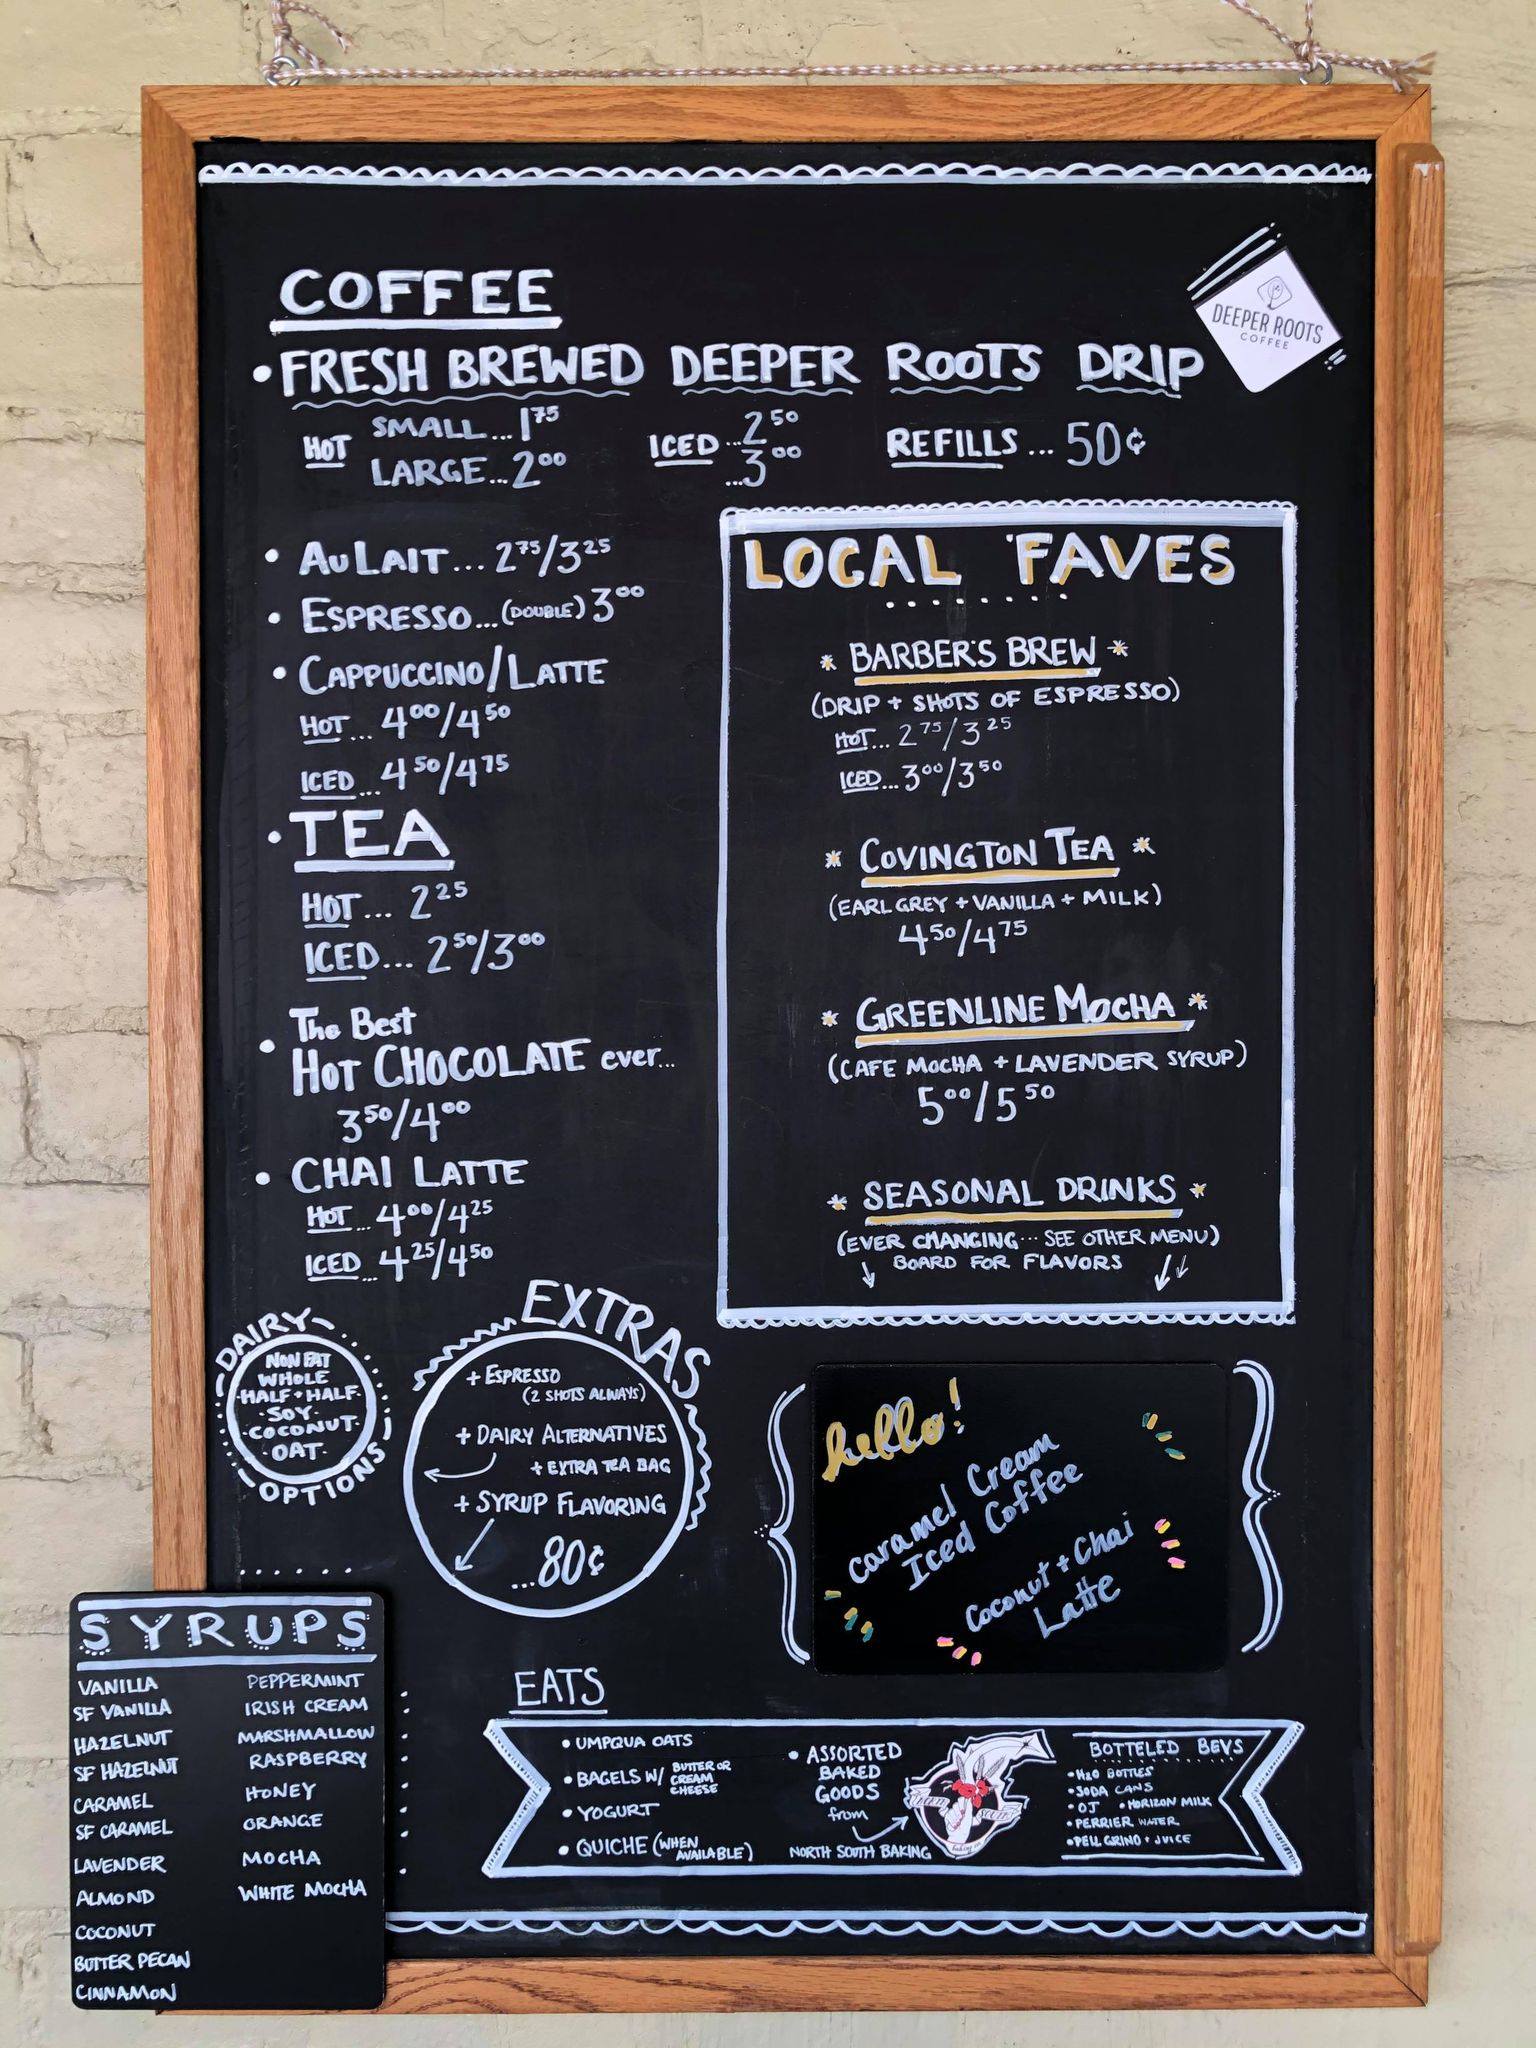 DEEPER ROOTS
COFFEE
COFFEE
• FRESH BREWED DEEPER ROOTS DRIP
HOT SMALL...1⁷⁵
LARGE...2⁰⁰
ICED...2⁵⁰
...3⁰⁰
REFILLS...50¢
• AU LAIT...2⁷⁵/3²⁵
• ESPRESSO...(DOUBLE) 3⁰⁰
• CAPPUCCINO/LATTE
HOT...4⁰⁰/4⁵⁰
ICED...4⁵⁰/4⁷⁵
• TEA
HOT...2²⁵
ICED...2⁵⁰/3⁰⁰
• The Best
HOT CHOCOLATE ever...
3⁵⁰/4⁰⁰
• CHAI LATTE
HOT...4⁰⁰/4²⁵
ICED...4²⁵/4⁵⁰
LOCAL FAVES
* BARBER'S BREW *
(DRIP + SHOTS OF ESPRESSO)
HOT...2⁷⁵/3²⁵
ICED...3⁰⁰/3⁵⁰
* COVINGTON TEA *
(EARL GREY + VANILLA + MILK)
4⁵⁰/4⁷⁵
* GREENLINE MOCHA *
(CAFE MOCHA + LAVENDER SYRUP)
5⁰⁰/5⁵⁰
* SEASONAL DRINKS *
(EVER CHANGING... SEE OTHER MENU)
BOARD FOR FLAVORS
DAIRY
NON FAT
WHOLE
HALF + HALF
SOY
COCONUT
OAT
OPTIONS
EXTRAS
+ ESPRESSO
(2 SHOTS ALWAYS)
+ DAIRY ALTERNATIVES
+ EXTRA TEA BAG
+ SYRUP FLAVORING
...80¢
hello!
Caramel Cream
Iced Coffee
Coconut + Chai
Latte
SYRUPS
VANILLA
SF VANILLA
HAZELNUT
SF HAZELNUT
CARAMEL
SF CARAMEL
LAVENDER
ALMOND
COCONUT
BUTTER PECAN
CINNAMON
PEPPERMINT
IRISH CREAM
MARSHMALLOW
RASPBERRY
HONEY
ORANGE
MOCHA
WHITE MOCHA
EATS
• UMPQUA OATS
• BAGELS W/ BUTTER OR
CREAM
CHEESE
• YOGURT
• QUICHE (WHEN
AVAILABLE)
• ASSORTED
BAKED
GOODS
from
NORTH SOUTH BAKING
BOTTELED BEVS
• H2O BOTTLES
• SODA CANS
• OJ • HORIZON MILK
• PERRIER WATER
• PELLGRINO + JUICE